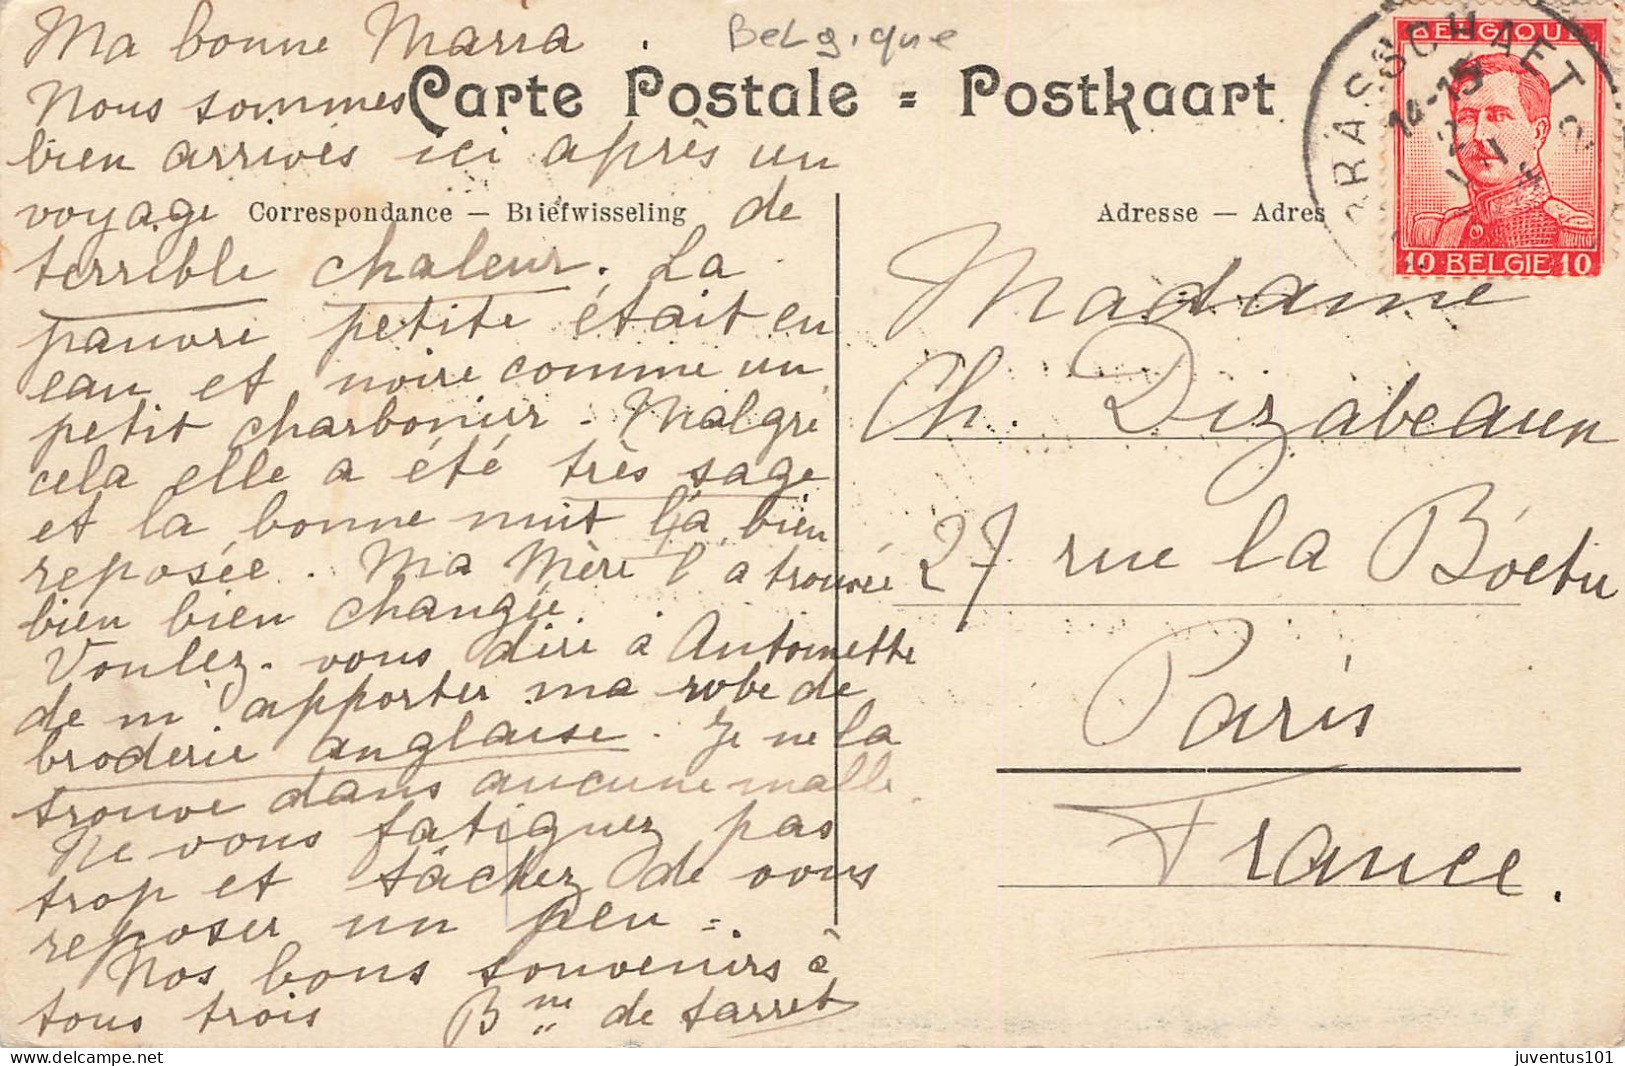 Ma bonne Maria.
Belgique
Nous sommes
Carte Postale = Postkaart
bien arrivés ici après un
voyage de
Correspondance — Briefwisseling
terrible chaleur. La
pauvre petite était en
eau et noire comme un
petit charbonier. Malgré
cela elle a été très sage
et la bonne nuit l'a bien
reposée. Ma Mère l'a trouvée
bien bien changée
Voulez-vous dire à Antoinette
de m'apporter ma robe de
broderie anglaise. Je ne la
trouve dans aucune malle.
Ne vous fatiguez pas
trop et tâchez de vous
reposer un peu =.
Nos bons souvenirs à
tous trois
Bnne de Tarret
BELGIQUE
10 BELGIE 10
BRASSCHAET
14-15
Adresse — Adres
Madame
Ch. Dizabeauen
27 rue la Böetie
Paris
France.
juventus101